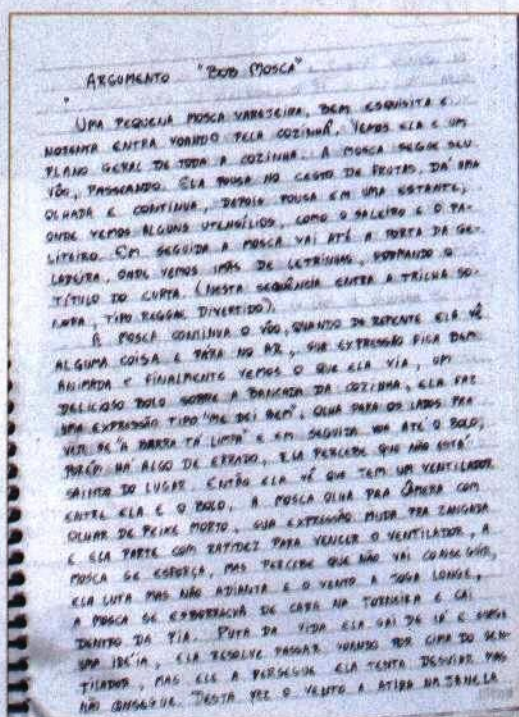 ARGUMENTO "BOB MOSCA"
UMA PEQUENA MOSCA VAREJEIRA, BEM ESQUISITA E
NOJENTA ENTRA VOANDO PELA COZINHA. VEMOS ELA E UM
PLANO GERAL DE TODA A COZINHA. A MOSCA SEGUE SEU
VÔO, PASSEANDO. ELA POUSA NO CESTO DE FRUTAS, DÁ UMA
OLHADA E CONTINUA, DEPOIS POUSA EM UMA ESTANTE,
ONDE VEMOS ALGUNS UTENSÍLIOS, COMO O SALEIRO E O PA-
LITEIRO. EM SEGUIDA A MOSCA VAI ATÉ A PORTA DA GE-
LADEIRA, ONDE VEMOS IMÃS DE LETRINHAS, FORMANDO O
TÍTULO DO CURTA. (NESTA SEQUÊNCIA ENTRA A TRILHA SO-
NORA, TIPO REGGAE DIVERTIDO).
A MOSCA CONTINUA O VÔO, QUANDO DE REPENTE ELA VÊ
ALGUMA COISA E PÁRA NO AR, SUA EXPRESSÃO FICA BEM
ANIMADA E FINALMENTE VEMOS O QUE ELA VIA, UM
DELICIOSO BOLO SOBRE A BANCADA DA COZINHA, ELA FAZ
UMA EXPRESSÃO TIPO "ME DEI BEM", OLHA PARA OS LADOS PRA
VER SE "A BARRA TÁ LIMPA" E EM SEGUIDA VOA ATÉ O BOLO,
PORÉM HÁ ALGO DE ERRADO, ELA PERCEBE QUE NÃO ESTÁ
SAINDO DO LUGAR. ENTÃO ELA VÊ QUE TEM UM VENTILADOR
ENTRE ELA E O BOLO. A MOSCA OLHA PRA CÂMERA COM
OLHAR DE PEIXE MORTO, SUA EXPRESSÃO MUDA PRA ZANGADA
E ELA PARTE COM RAPIDEZ PARA VENCER O VENTILADOR, A
MOSCA SE ESFORÇA, MAS PERCEBE QUE NÃO VAI CONSEGUIR,
ELA LUTA MAS NÃO ADIANTA E O VENTO A JOGA LONGE,
A MOSCA SE ESBORRACHA DE CARA NA TORNEIRA E CAI
DENTRO DA PIA. PUTA DA VIDA ELA SAI DE LÁ E SURGE
UMA IDÉIA, ELA RESOLVE PASSAR VOANDO POR CIMA DO VEN-
TILADOR, MAS ELE A PERSEGUE ELA TENTA DESVIAR MAS
NÃO CONSEGUE. DESTA VEZ O VENTO A ATIRA NA JANELA